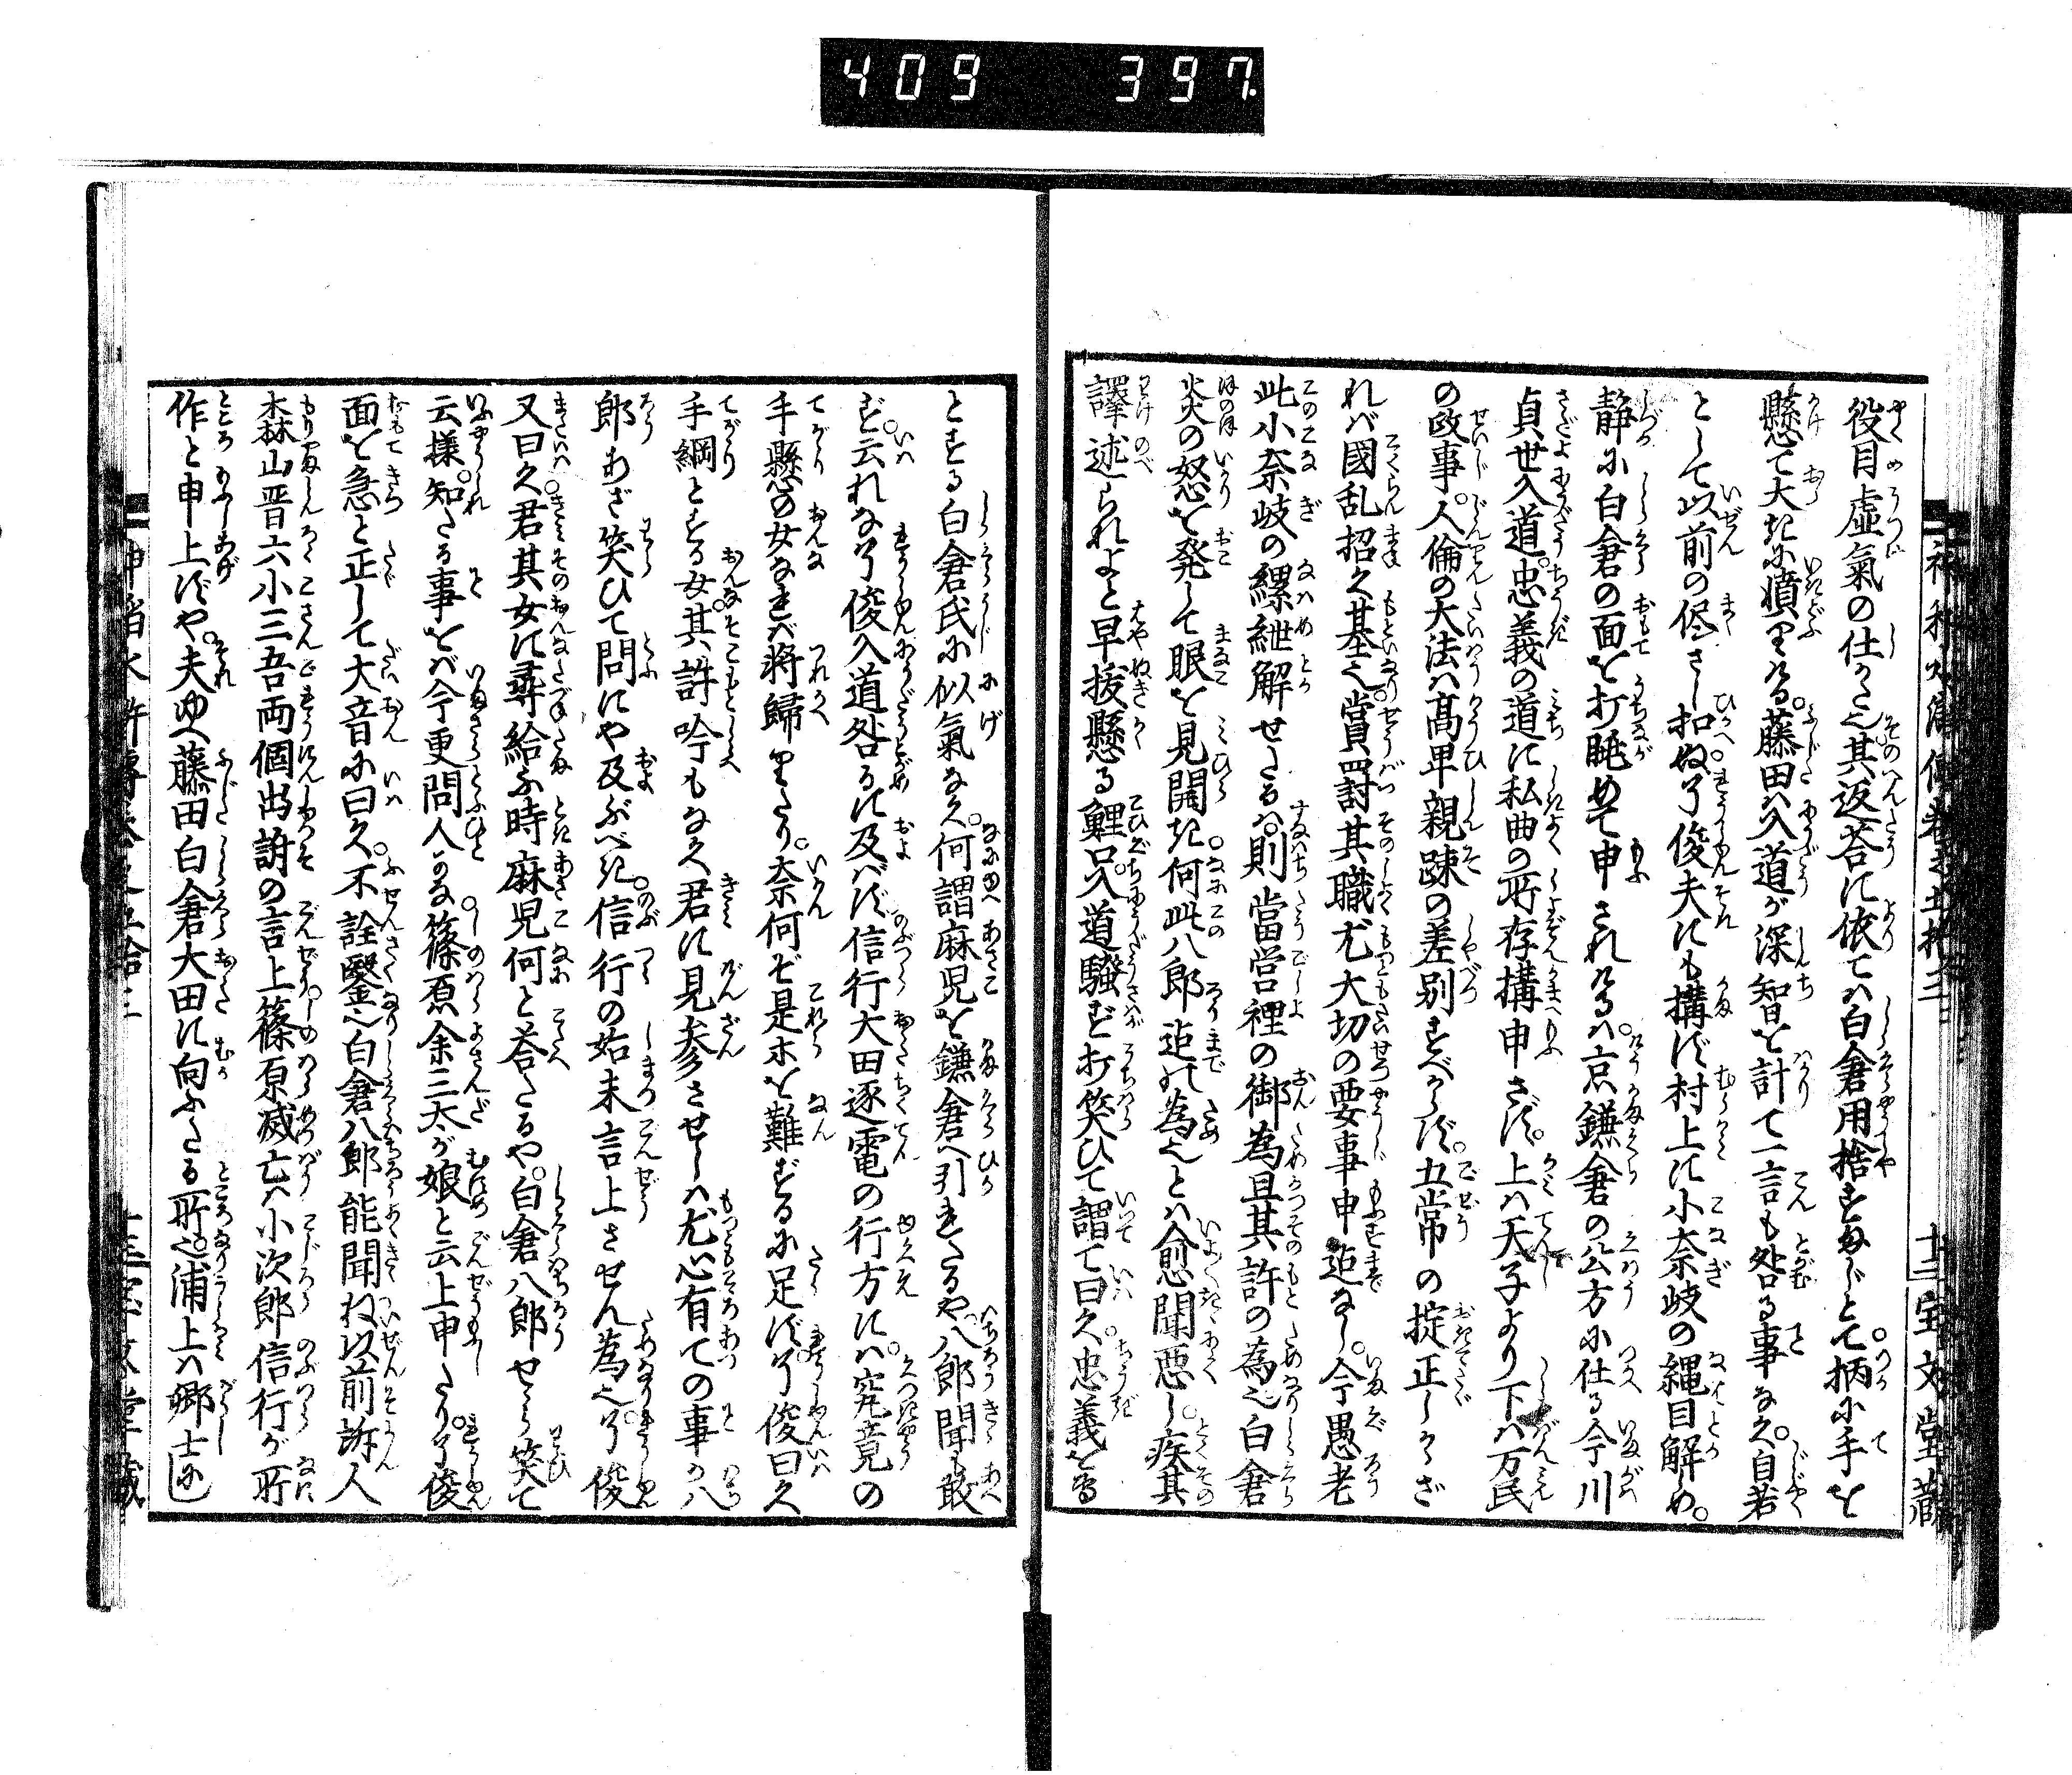 409 397.
役目虚氣の仕かた也其返答に依ては白倉用捨せぬぞとて柄に手を
懸て大きに憤りける藤田入道が深智を計て一言も咎る事なく自若
として以前の侭さし扣ぬ了俊夫にも構ず村上に小奈岐の縄目解め
静に白倉の面を打眺めて申されけるは京鎌倉の公方に仕る今川
貞世入道忠義の道に私曲の所存構申さず上は天子より下は万民
の政事人倫の大法は高卑親疎の差別すべからず五常の掟正しからざ
れば國乱招く基也賞罰其職尤大切の要事申迄なし今愚老
此小奈岐の縲紲解せたるは則當営裡の御為且其許の為也白倉
炎の怒を発して眼を見開き何此八郎迄の為也とは愈聞悪し疾其
譯述られよと早抜懸る鯉口入道騒ず打笑ひて謂て曰く忠義を
とする白倉氏に似氣なく何謂麻児を鎌倉へ引きたるや八郎聞も敢
ず云れな了俊入道咎るに及ばず信行大田逐電の行方には究竟の
手懸の女なれば将歸りたり奈何ぞ是等を難ずるに足ず了俊曰く
手綱とする女其許吟もなく君に見参させしは尤心有ての事か八
郎あざ笑ひて問にや及ぶべき信行の始末言上させん為也了俊
又曰く君其女に尋給ふ時麻児何と答たるや白倉八郎せゝら笑て
云様知たる事をば今更問人かな篠原余三太が娘と云上申たり了俊
面を急と正して大音に曰く不詮鑿也白倉八郎能聞ね以前訴人
森山晋六小三吾両個出訴の言上篠原滅亡は小次郎信行が所
作と申上ずや夫ゆへ藤田白倉大田に向ふたる所也浦上は郷士に
十二 宝文堂蔵